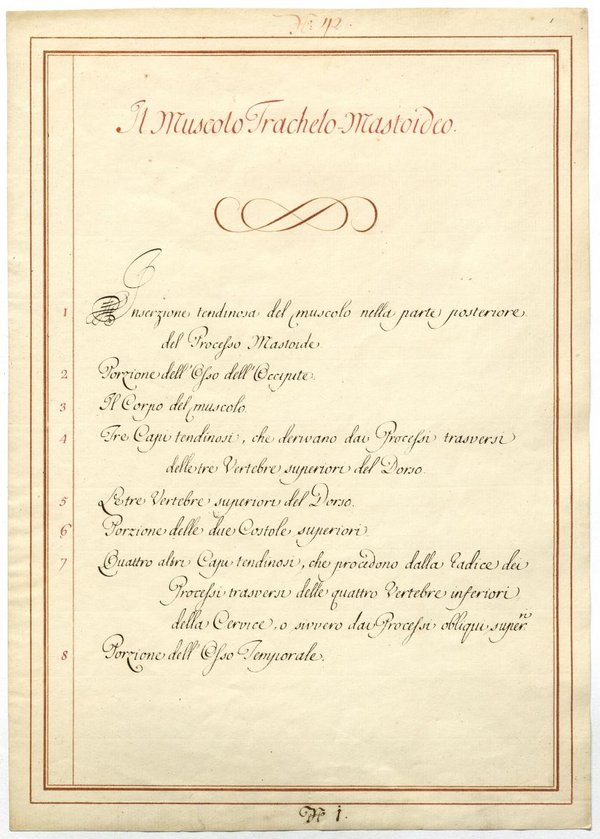 N. 42.
Il Muscolo Trachelo-Mastoideo.
1 Inserzione tendinosa del muscolo nella parte posteriore
del Processo Mastoide.
2 Porzione dell'Osso dell'Occipite.
3 Il Corpo del muscolo.
4 Tre Capi tendinosi, che derivano dai Processi trasversi
delle tre Vertebre superiori del Dorso.
5 Le tre Vertebre superiori del Dorso.
6 Porzione delle due Costole superiori.
7 Quattro altri Capi tendinosi, che procedono dalla Radice dei
Processi trasversi delle quattro Vertebre inferiori
della Cervice, o sivvero dai Processi obliqui super.ri
8 Porzione dell'Osso Temporale.
N. 1.